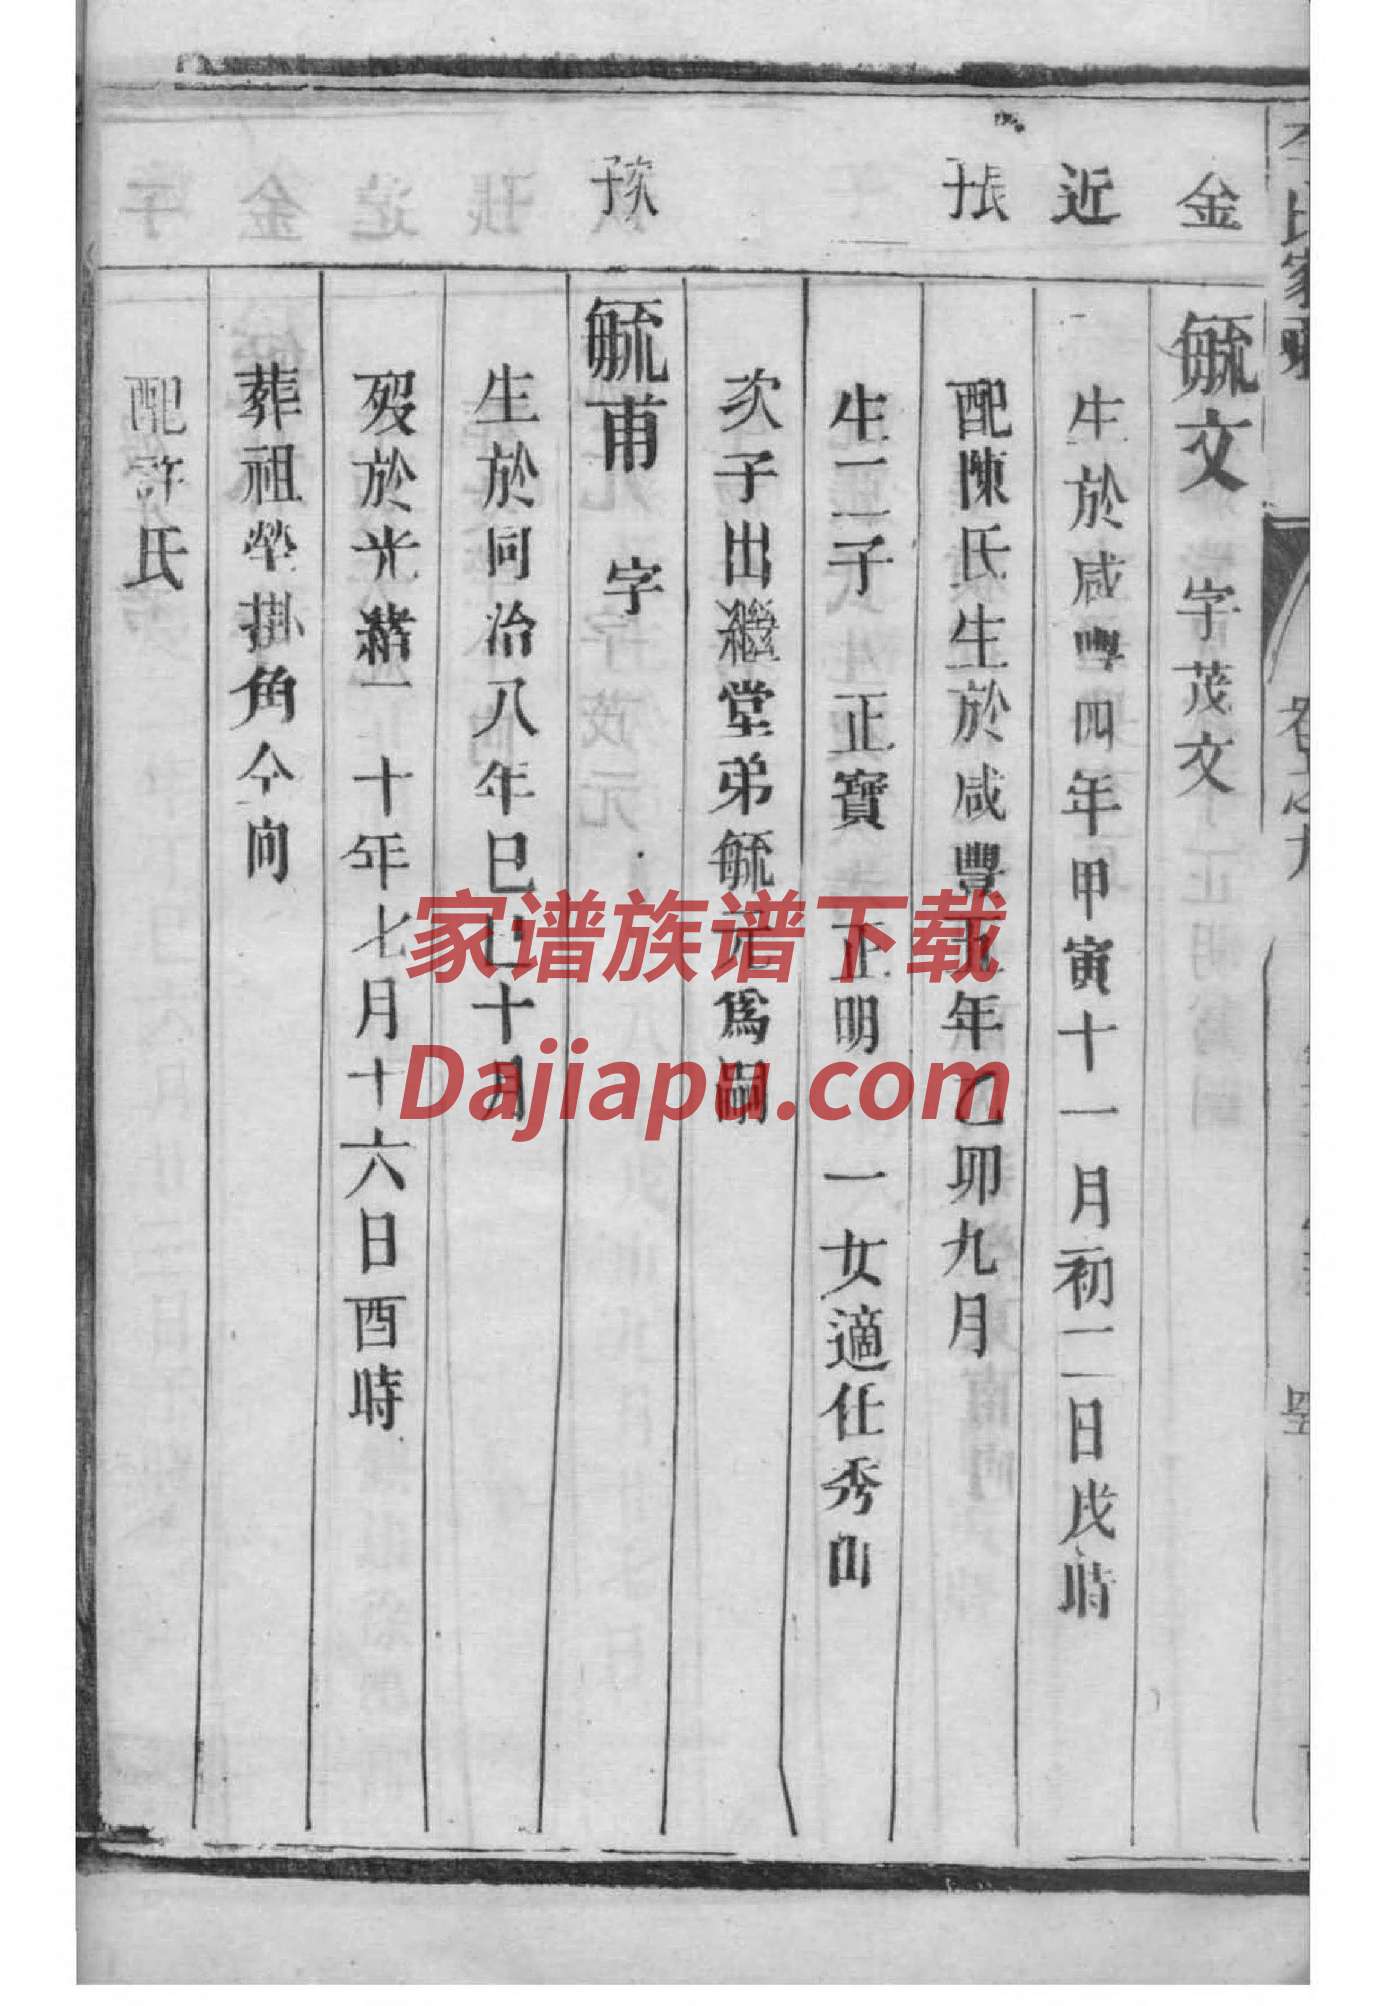 金近子張
毓文 字茂文
生於咸豐四年甲寅十一月初二日戌時
配陳氏生於咸豐五年乙卯九月
生二子 正寶 正明 一女適任秀山
次子出繼堂弟毓元爲嗣
子次
毓甫 字
生於同治八年己巳十月
歿於光緒二十年七月十六日酉時
葬祖塋掛角仐向
配許氏
家谱族谱下载
Dajiapu.com